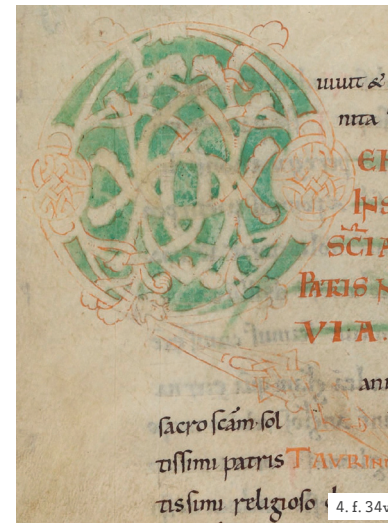 uiuit &
nita
ER
INS
SCĪA
PATRIS N
VIA.
ann
sacro scām·sol
tissimi patris TAURINI
tissimi religioso d
4. f. 34v